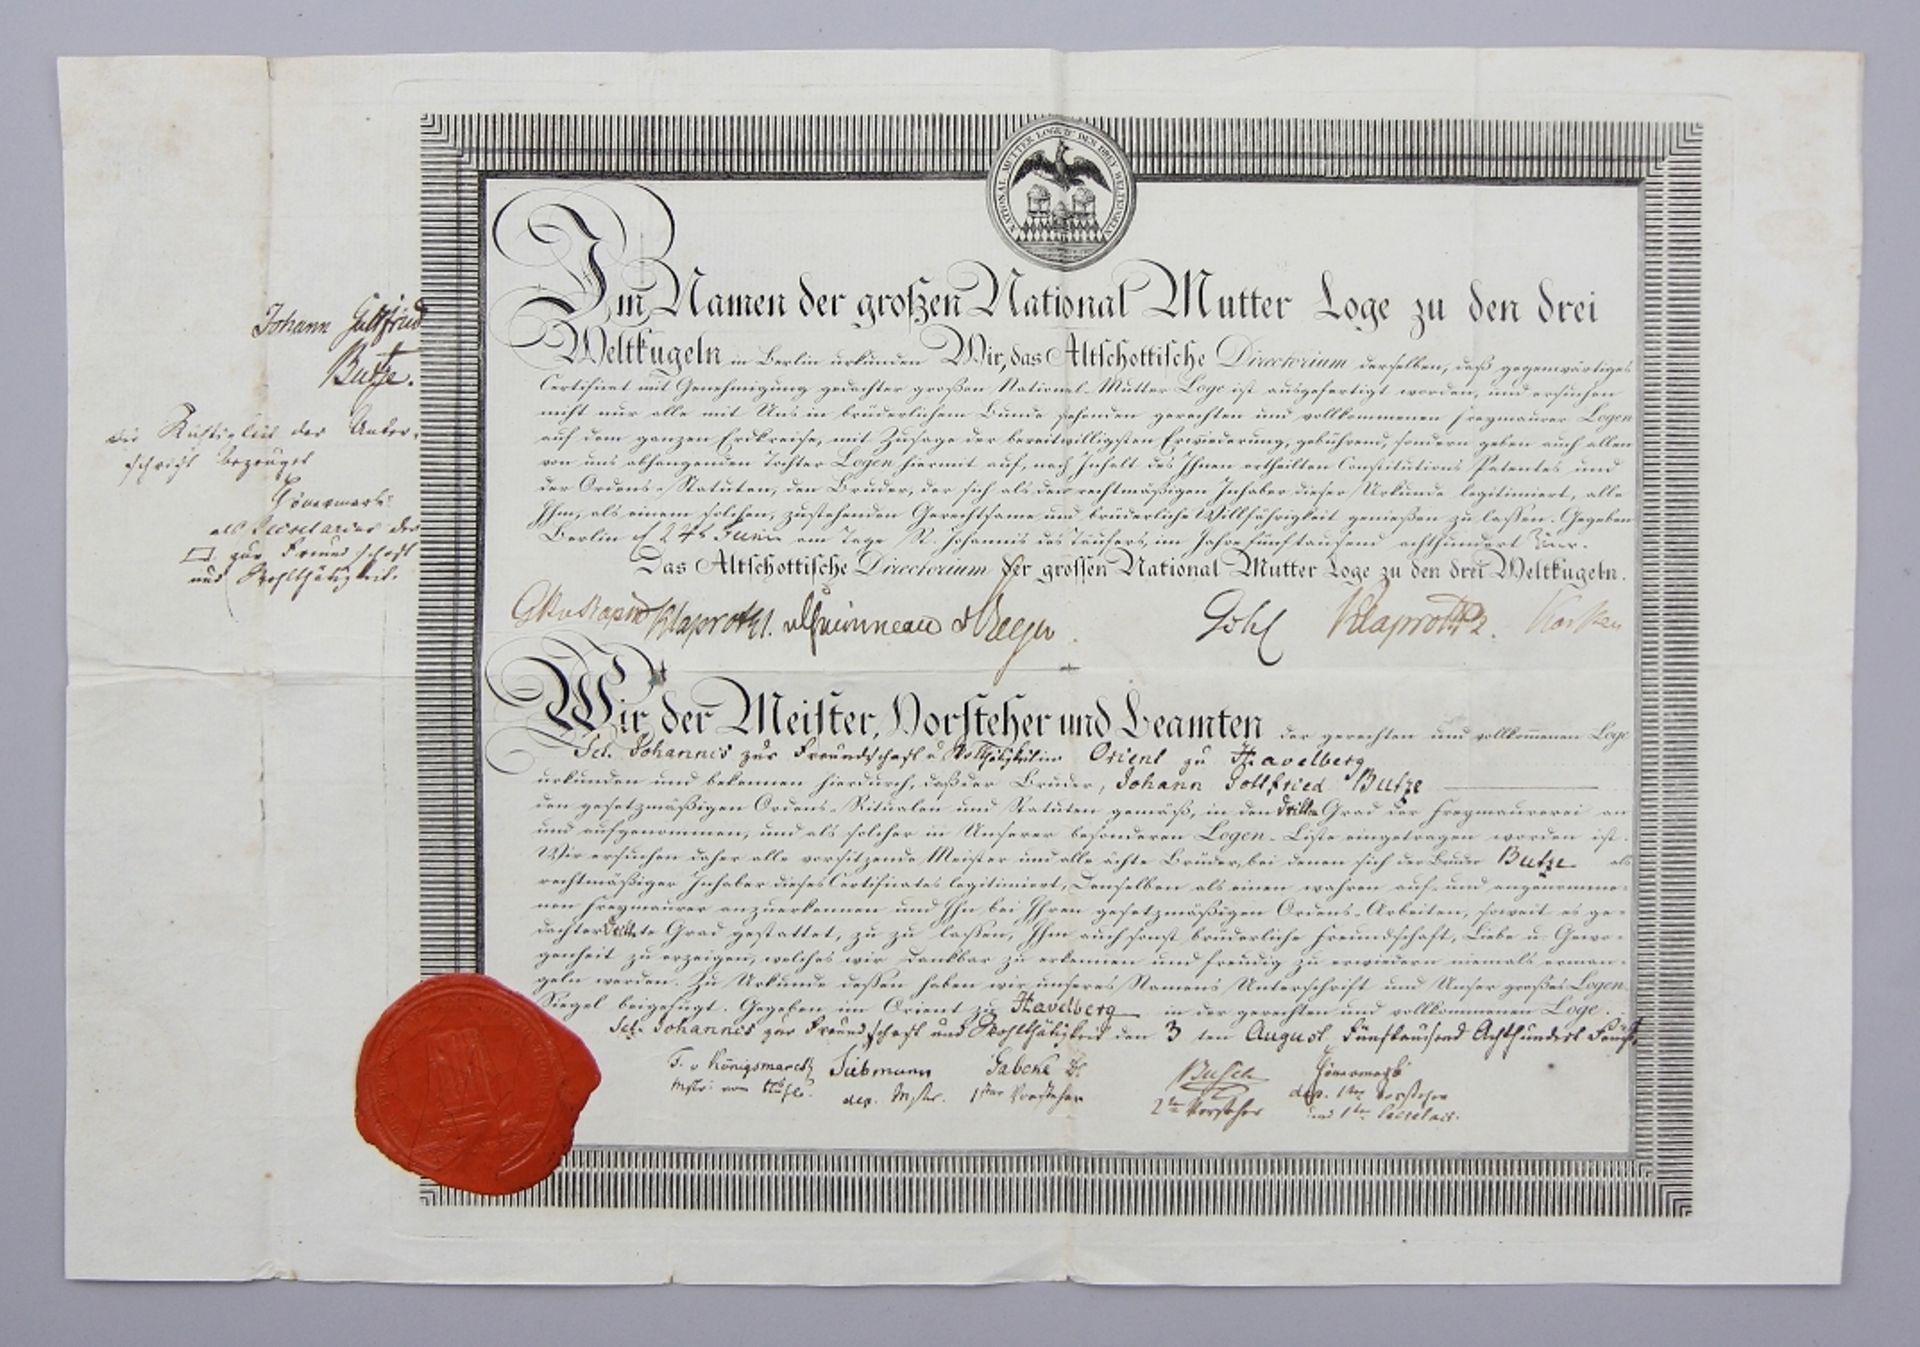 NATIONAL MUTTER LOGE Z. DEN DREI WELTKUGELN
Im Namen der großen National Mutter Loge zu den drei
Weltkugeln in Berlin urkunden Wir, das Altschottische Directorium derselben, daß gegenwärtiges
Certificat mit Genehmigung gedachter großen National-Mutter Loge ist ausgefertigt worden, und ersuchen
nicht nur alle mit Uns in brüderlichem Bunde stehenden gerechten und vollkommenen Freymaurer Logen
auf dem ganzen Erdkreise, mit Zusage der bereitwilligsten Erwiederung, gebührend sondern geben auch allen
von uns abhangenden Tochter Logen hiermit auf, nach Inhalt des Ihnen ertheilten Constitutions Patentes und
der Ordens-Statuten, den Bruder, der sich als den rechtmäßigen Inhaber dieser Urkunde legitimiert, alle
Ihm, als einem solchen, zustehenden Gerechtsame und brüderliche Willfährigkeit genießen zu laßen. Gegeben
Berlin d 24t Juni am Tage St. Johannis des Täufers, im Jahre fünftausend achthundert
Das Altschottische Directorium der grossen National Mutter Loge zu den drei Weltkugeln.
Klaproth 1. Gohl Klaproth 2.
Wir der Meister, Vorsteher und Beamten der gerechten und vollkommenen Loge
Sct. Johannis zur Freundschaft u Wohlthätigkeit im Orient zu Havelberg
urkunden und bekennen hierdurch, daß der Bruder, Johann Gottfried Butze
den gesetzmäßigen Ordens-Ritualen und Statuten gemäß, in den dritten Grad der Freymaurerei an
und aufgenommen, und als solcher in Unserer besonderen Logen-Liste eingetragen worden ist.
Wir ersuchen daher alle vorsitzende Meister und alle ächte Brüder, bei denen sich der Bruder Butze als
rechtmäßiger Inhaber dieses Certificates legitimiert, Denselben als einen wahren auf- und angenomme-
nen Freymaurer anzuerkennen und Ihn bei Ihren gesetzmäßigen Ordens-Arbeiten, soweit es ge-
dachter Grad gestattet, zu zu laßen, Ihm auch sonst brüderliche Freundschaft, Liebe u. Gewo-
genheit zu erzeigen, welches wir dankbar zu erkennen und freudig zu erwiedern niemals erman-
geln werden. Zu Urkunde deßen haben wir unseres Namens Unterschrift und Unser großes Logen
Siegel beigefügt. Gegeben im Orient zu Havelberg in der gerechten und vollkommenen Loge
Sct. Johannis zur Freundschaft und Wohlthätigkeit den 3 ten August Fünftausend Achthundert Fünf.
F. v Königsmarck Siebmann Busch
Mstr: vom Stuhl. dep. Mstr. 1ster Vorsteher 2te Vorsteher dep. 1ter Vorsteher
und 1ter Secretair.
Johann Gottfried
Butze.
Die Richtigkeit der Unter-
schrift bezeuget
als Secretarius der
zur Freundschaft
und Wohlthätigkeit.